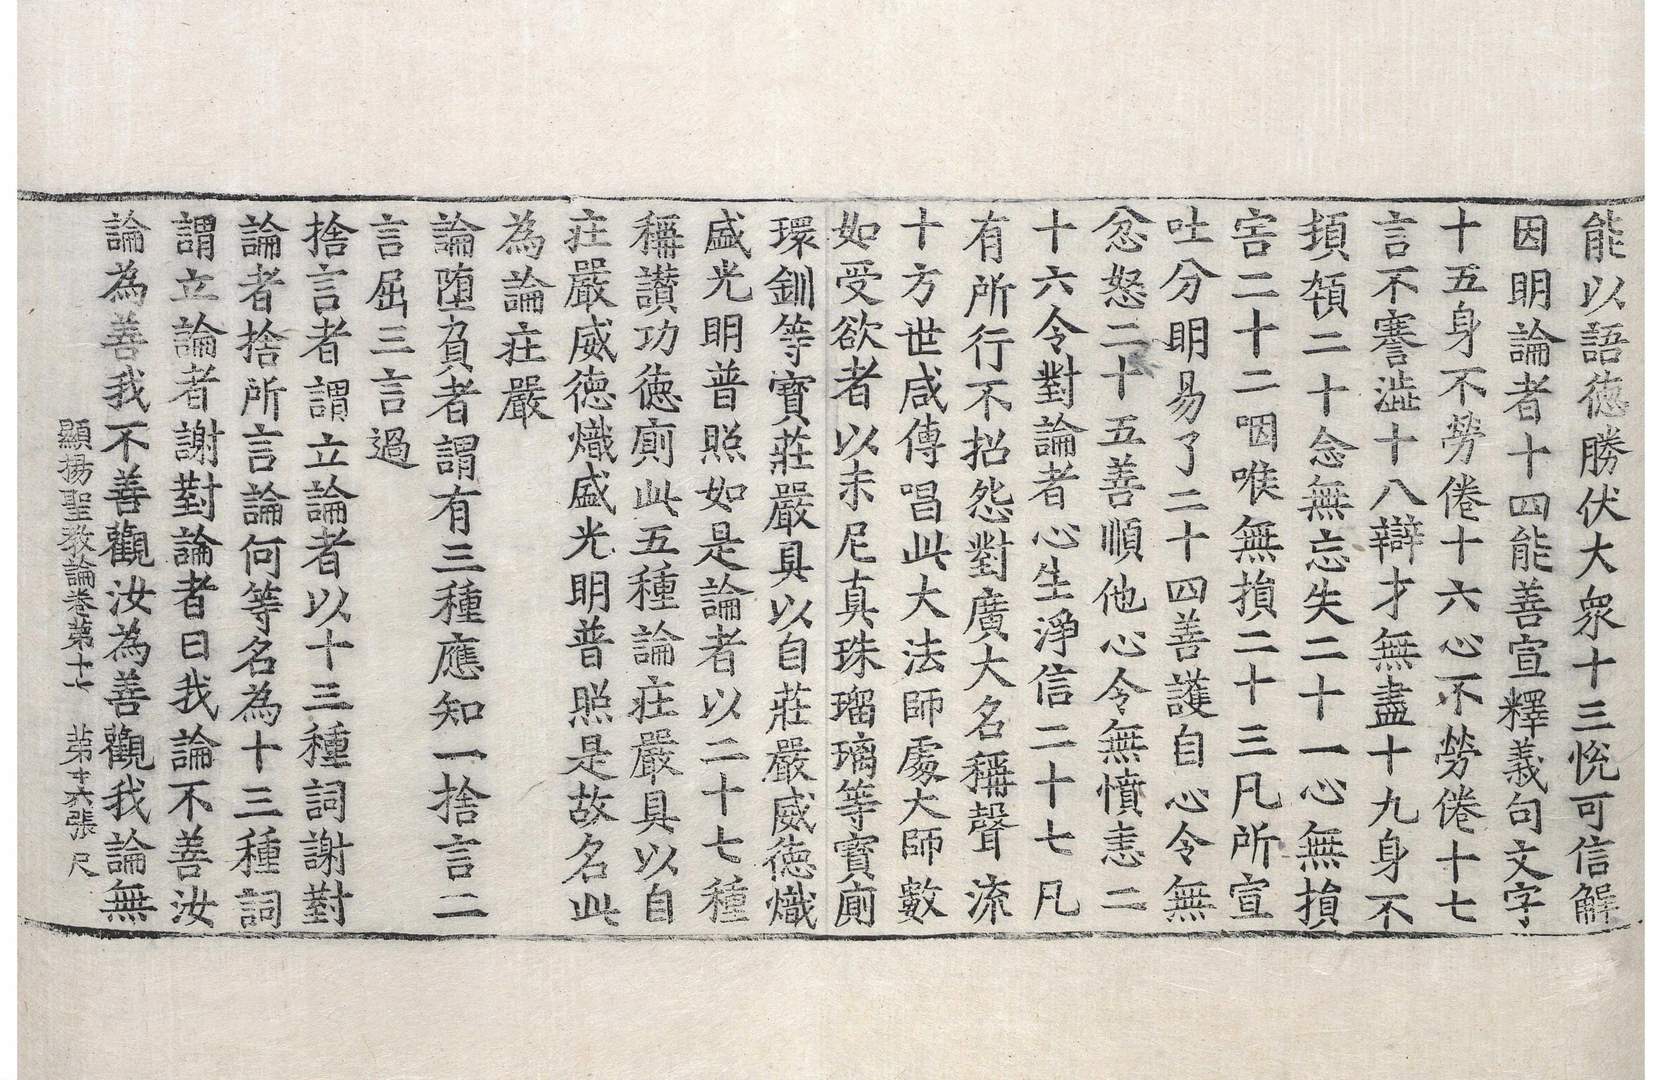 能以語德勝伏大衆十三恱可信解
因明論者十四能善宣釋義句文字
十五身不勞倦十六心不勞倦十七
言不謇澁十八辯才無盡十九身不
頓顇二十念無忘失二十一心無損
害二十二咽喉無損二十三凡所宣
吐分明易了二十四善護自心令無
忿怒二十五善順他心令無憤恚二
十六令對論者心生淨信二十七凡
有所行不招怨對廣大名稱聲流
十方世咸傳唱此大法師處大師數
如受欲者以末尼真珠瑠璃等寶廁
環釧等寶莊嚴具以自莊嚴威德熾
盛光明普照如是論者以二十七種
稱讃功德廁此五種論莊嚴具以自
莊嚴威德熾盛光明普照是故名此
為論莊嚴
論墮負者謂有三種應知一捨言二
言屈三言過
捨言者謂立論者以十三種詞謝對
論者捨所言論何等名為十三種詞
謂立論者謝對論者曰我論不善汝
論為善我不善觀汝為善觀我論無
顯揚聖教論卷第十七 第十六張 尺